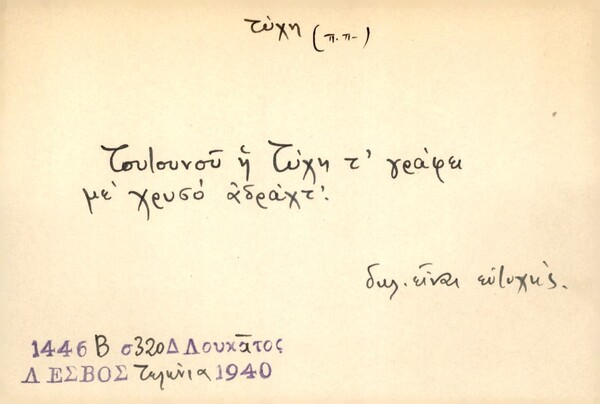 τύχη (π.π-)
Τουτουνοῦ ἡ Τύχη τ' γράφει
μὲ χρυσό ἀδράχτ'.
δηλ. εἶναι εὐτυχής.
1446 Β σ320 Δ Λουκᾶτος
ΛΕΣΒΟΣ Τελώνια 1940